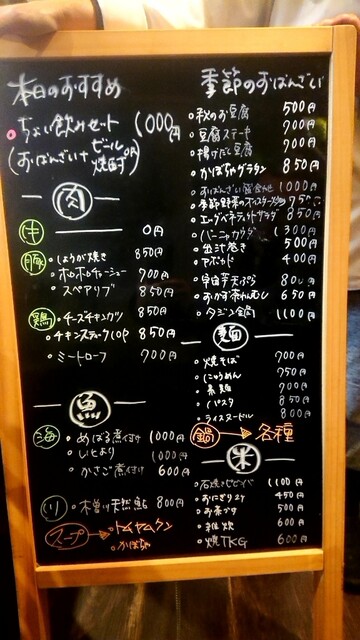 本日のおすすめ
ちょい飲みセット 1000円
(おばんざい+ビールor焼酎)
肉
牛 0円
豚
・しょうが焼き 850円
・ホロホロチャーシュー 700円
・スペアリブ 850円
鶏
・チーズチキンカツ 850円
・チキンステーキ 850円
・ミートローフ 700円
魚
海
・めばる煮付け 1000円
・いとより 1000円
・かさご煮付け 600円
川
・木曽川天然鮎 800円
スープ
・トムヤムクン
・かぼちゃ
季節のおばんざい
・秋のお豆腐 500円
・豆腐ステーキ 700円
・揚げだし豆腐 700円
・かぼちゃグラタン 850円
・おばんざい盛合せ 1000円
・季節野菜のオイスター炒め 750円
・エッグベネディクトサラダ 850円
・バーニャカウダ 1300円
・出汁巻き 500円
・アボカド 400円
・宇治芋天ぷら 800円
・おかず茶わんむし 650円
・タジン鍋 1100円
麺
・焼そば 700円
・にゅうめん 750円
・素麺 700円
・パスタ 850円
・ライスヌードル 800円
鍋 → 各種
米
・石焼きビビンバ 1100円
・おにぎり2ヶ 450円
・お茶づけ 500円
・雑炊 600円
・焼TKG 600円